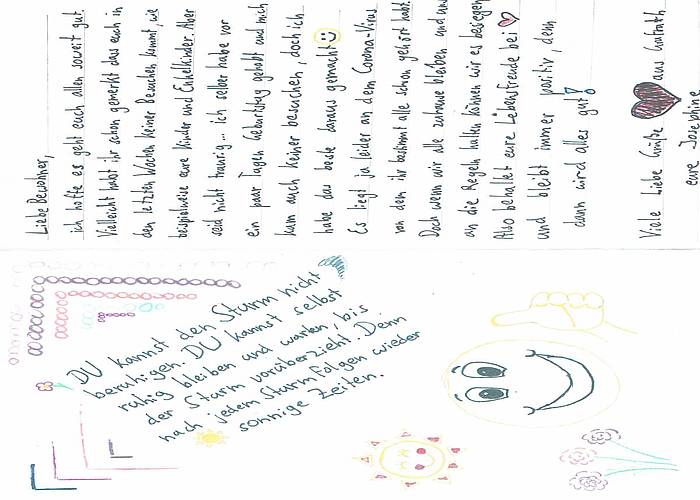 Liebe Bewohner,
ich hoffe es geht euch allen soweit gut.
Vielleicht habt ihr schon gemerkt das euch in
den letzten Wochen keiner Besuchen kommt, wie
beispielweise eure Kinder und Enkelkinder. Aber
seid nicht traurig... ich selber habe vor
ein paar Tagen Geburtstag gehabt und mich
kam auch keiner besuchen, doch ich
habe das beste daraus gemacht
Es liegt ja leider an dem Corona-Virus
von dem ihr bestimmt alle schon gehört habt.
Doch wenn wir alle zuhause bleiben und uns
an die Regeln halten können wir es besiegen
Also behaltet eure Lebensfreude bei
und bleibt immer positiv, denn
dann wird alles gut!
Viele Liebe Grüße aus
eure Josephine
DU kannst den Sturm nicht
beruhigen. DU kannst selbst
ruhig bleiben und warten, bis
der Sturm vorüberzieht. Denn
nach jedem Sturm folgen wieder
sonnige Zeiten.